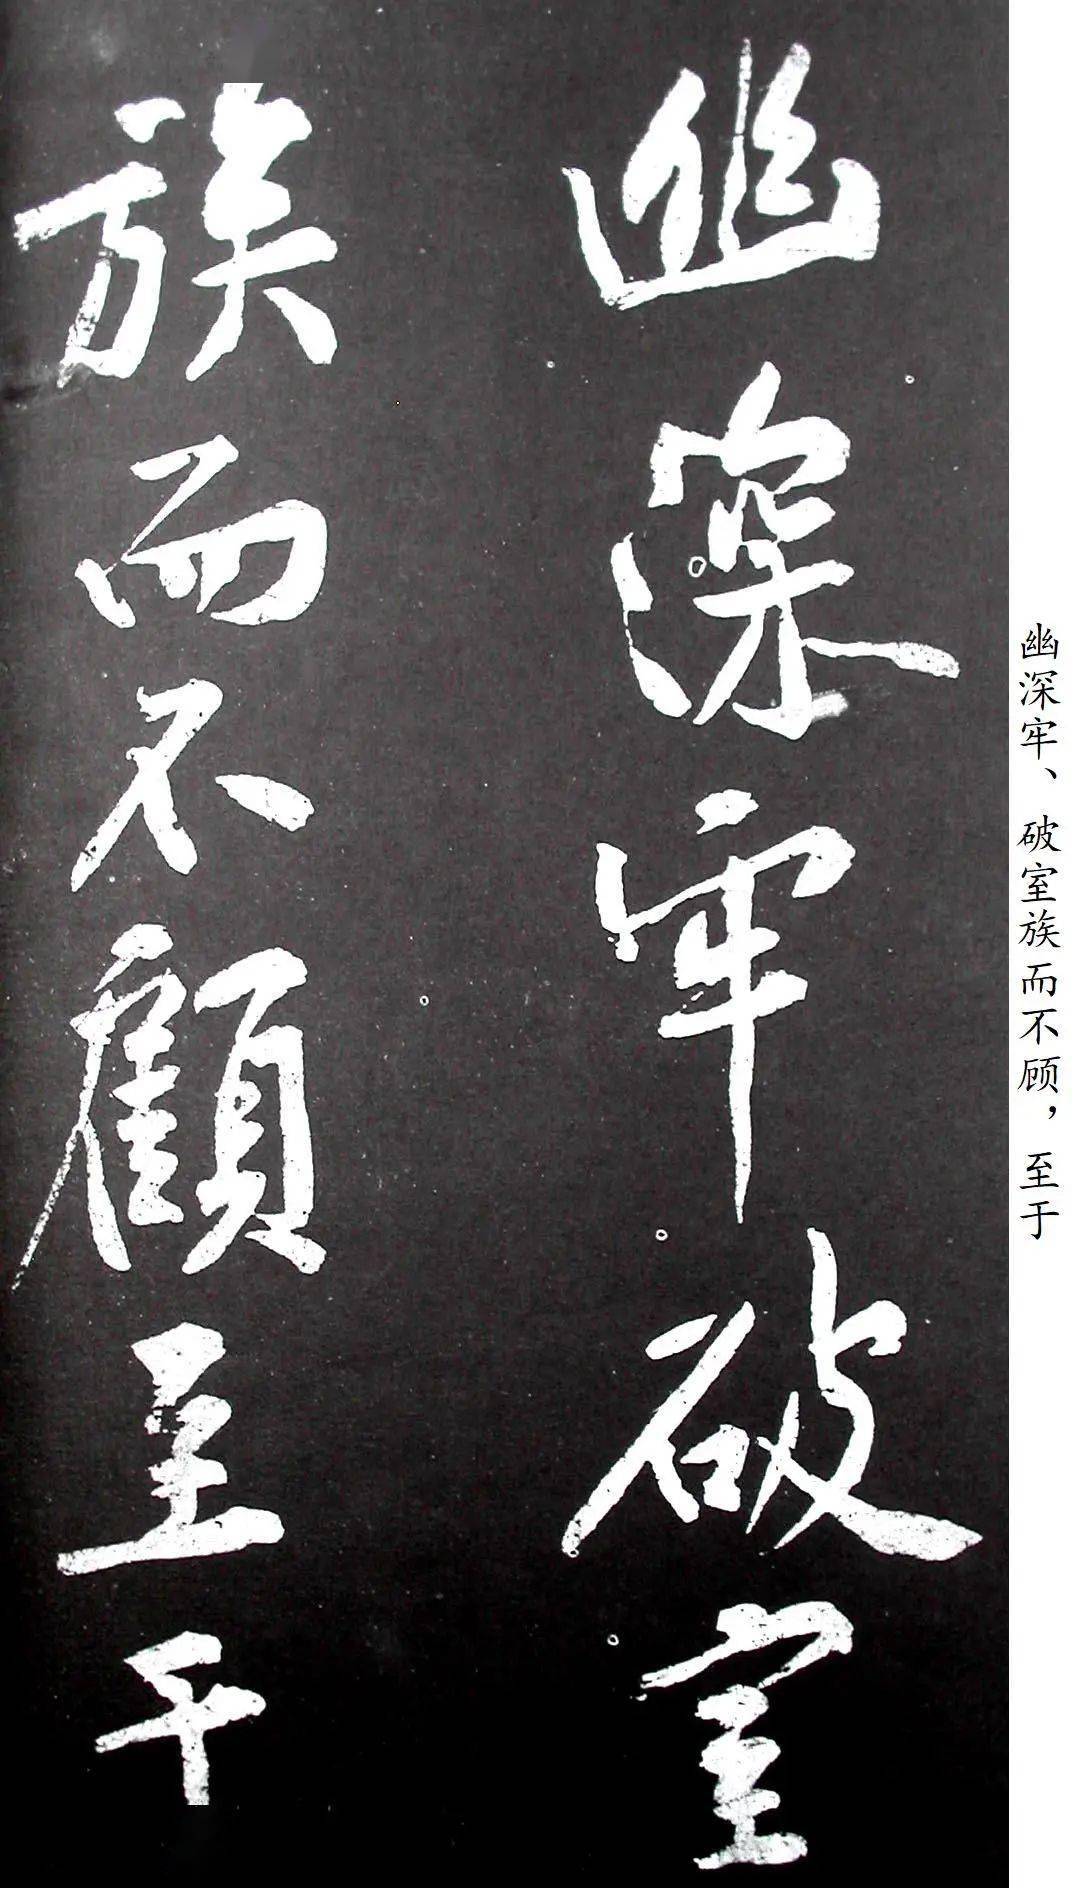 幽深牢破室
族而不顧至于
幽深牢、破室族而不顾，至于